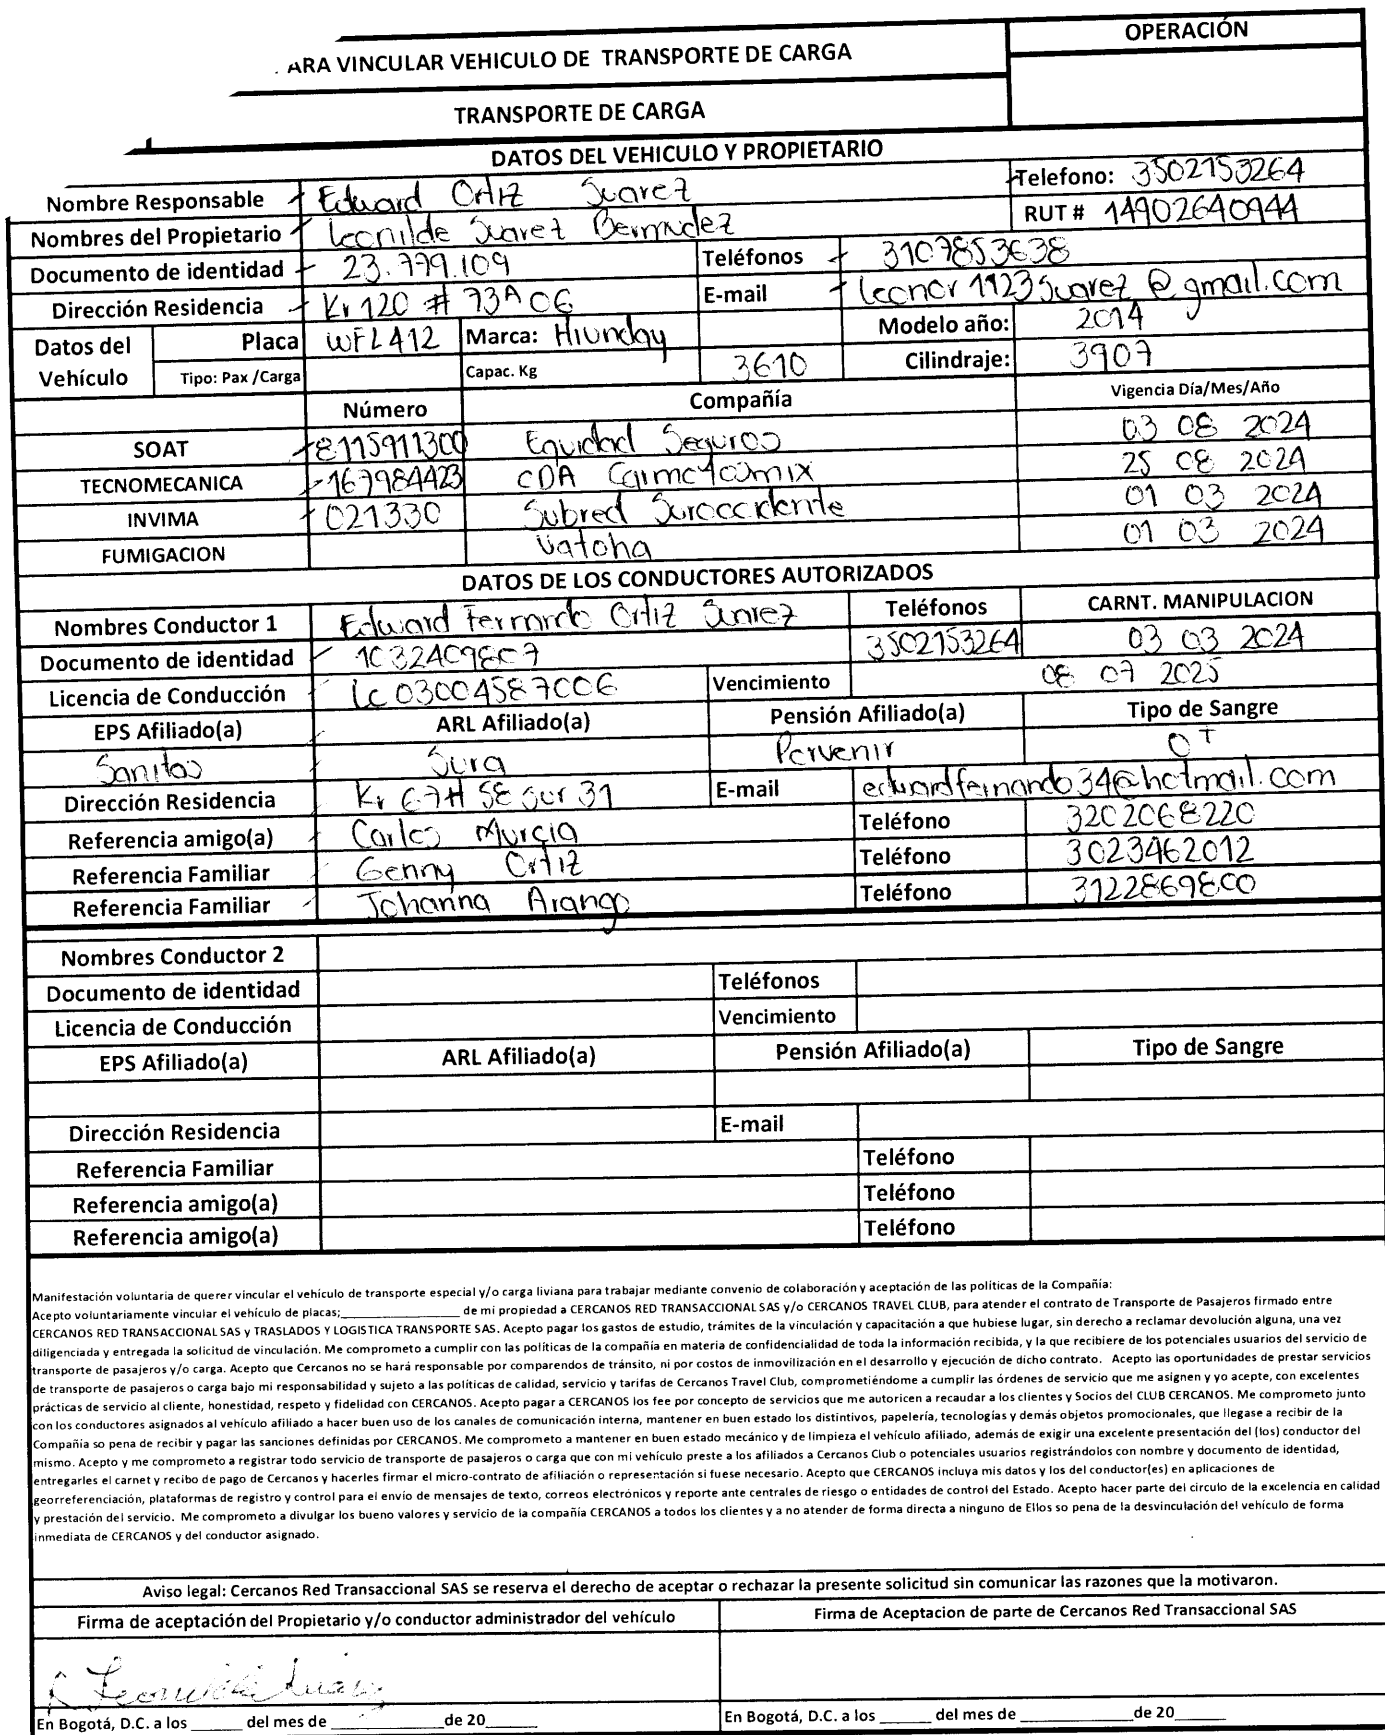 ARA VINCULAR VEHICULO DE TRANSPORTE DE CARGA
OPERACIÓN
TRANSPORTE DE CARGA
DATOS DEL VEHICULO Y PROPIETARIO
Nombre Responsable Edward Ortiz Suarez Telefono: 3502153264
Nombres del Propietario Leonilde Suarez Bermudez RUT # 14902640944
Documento de identidad 23.779.109 Teléfonos 3107853638
Dirección Residencia Kr 120 # 73A 06 E-mail leonor1123suarez@gmail.com
Datos del Vehículo Placa WFL412 Marca: Hiunday Modelo año: 2014
Tipo: Pax /Carga Capac. Kg 3610 Cilindraje: 3907
Número Compañía Vigencia Día/Mes/Año
SOAT 8115911300 Equidad Seguros 03 08 2024
TECNOMECANICA 167984423 CDA 25 08 2024
INVIMA 021330 Subred Suroccidente 01 03 2024
FUMIGACION Vatoha 01 03 2024
DATOS DE LOS CONDUCTORES AUTORIZADOS
Nombres Conductor 1 Edward Fernando Ortiz Suarez Teléfonos CARNT. MANIPULACION
Documento de identidad 1032409807 3502153264 03 03 2024
Licencia de Conducción Lc03004587006 Vencimiento 08 07 2025
EPS Afiliado(a) ARL Afiliado(a) Pensión Afiliado(a) Tipo de Sangre
Sanitas Sura Porvenir O+
Dirección Residencia Kr 67H 58 sur 31 E-mail edwardfernando34@hotmail.com
Referencia amigo(a) Carlos Murcia Teléfono 3202068220
Referencia Familiar Genny Ortiz Teléfono 3023462012
Referencia Familiar Johanna Arango Teléfono 3122869800
Nombres Conductor 2
Documento de identidad Teléfonos
Licencia de Conducción Vencimiento
EPS Afiliado(a) ARL Afiliado(a) Pensión Afiliado(a) Tipo de Sangre
Dirección Residencia E-mail
Referencia Familiar Teléfono
Referencia amigo(a) Teléfono
Referencia amigo(a) Teléfono
Manifestación voluntaria de querer vincular el vehículo de transporte especial y/o carga liviana para trabajar mediante convenio de colaboración y aceptación de las políticas de la Compañía:
Acepto voluntariamente vincular el vehículo de placas;__________________ de mi propiedad a CERCANOS RED TRANSACCIONAL SAS y/o CERCANOS TRAVEL CLUB, para atender el contrato de Transporte de Pasajeros firmado entre
CERCANOS RED TRANSACCIONAL SAS y TRASLADOS Y LOGISTICA TRANSPORTE SAS. Acepto pagar los gastos de estudio, trámites de la vinculación y capacitación a que hubiese lugar, sin derecho a reclamar devolución alguna, una vez
diligenciada y entregada la solicitud de vinculación. Me comprometo a cumplir con las políticas de la compañía en materia de confidencialidad de toda la información recibida, y la que recibiere de los potenciales usuarios del servicio de
transporte de pasajeros y/o carga. Acepto que Cercanos no se hará responsable por comparendos de tránsito, ni por costos de inmovilización en el desarrollo y ejecución de dicho contrato. Acepto las oportunidades de prestar servicios
de transporte de pasajeros o carga bajo mi responsabilidad y sujeto a las políticas de calidad, servicio y tarifas de Cercanos Travel Club, comprometiéndome a cumplir las órdenes de servicio que me asignen y yo acepte, con excelentes
prácticas de servicio al cliente, honestidad, respeto y fidelidad con CERCANOS. Acepto pagar a CERCANOS los fee por concepto de servicios que me autoricen a recaudar a los clientes y Socios del CLUB CERCANOS. Me comprometo junto
con los conductores asignados al vehículo afiliado a hacer buen uso de los canales de comunicación interna, mantener en buen estado los distintivos, papelería, tecnologías y demás objetos promocionales, que llegase a recibir de la
Compañía so pena de recibir y pagar las sanciones definidas por CERCANOS. Me comprometo a mantener en buen estado mecánico y de limpieza el vehículo afiliado, además de exigir una excelente presentación del (los) conductor del
mismo. Acepto y me comprometo a registrar todo servicio de transporte de pasajeros o carga que con mi vehículo preste a los afiliados a Cercanos Club o potenciales usuarios registrándolos con nombre y documento de identidad,
entregarles el carnet y recibo de pago de Cercanos y hacerles firmar el micro-contrato de afiliación o representación si fuese necesario. Acepto que CERCANOS incluya mis datos y los del conductor(es) en aplicaciones de
georreferenciación, plataformas de registro y control para el envío de mensajes de texto, correos electrónicos y reporte ante centrales de riesgo o entidades de control del Estado. Acepto hacer parte del circulo de la excelencia en calidad
y prestación del servicio. Me comprometo a divulgar los bueno valores y servicio de la compañía CERCANOS a todos los clientes y a no atender de forma directa a ninguno de Ellos so pena de la desvinculación del vehículo de forma
inmediata de CERCANOS y del conductor asignado.
Aviso legal: Cercanos Red Transaccional SAS se reserva el derecho de aceptar o rechazar la presente solicitud sin comunicar las razones que la motivaron.
Firma de aceptación del Propietario y/o conductor administrador del vehículo Firma de Aceptacion de parte de Cercanos Red Transaccional SAS
Leonilde Suarez
En Bogotá, D.C. a los ______ del mes de ____________de 20______ En Bogotá, D.C. a los ______ del mes de ____________de 20______